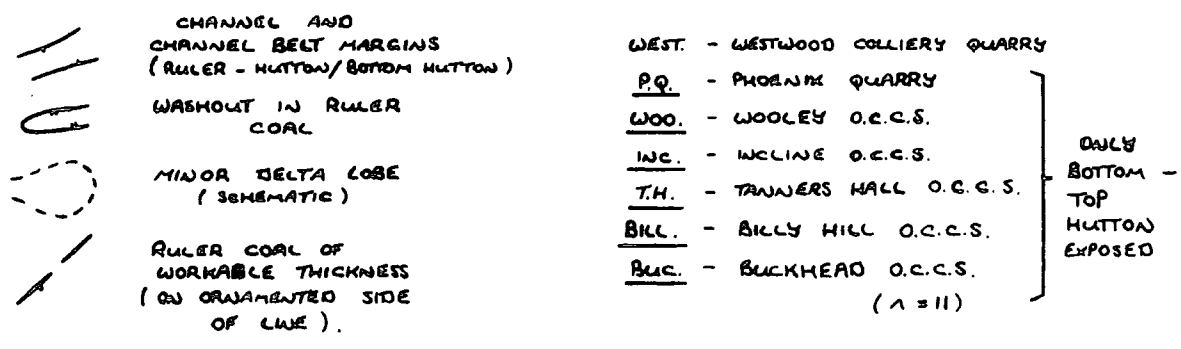 CHANNEL AND
CHANNEL BELT MARGINS
(RULER - HUTTON/BOTTOM HUTTON)
WASHOUT IN RULER
COAL
MINOR DELTA LOBE
(SCHEMATIC)
RULER COAL OF
WORKABLE THICKNESS
(ON ORNAMENTED SIDE
OF LINE).
WEST. - WESTWOOD COLLIERY QUARRY
P.Q. - PHOENIX QUARRY
WOO. - WOOLEY O.C.C.S.
INC. - INCLINE O.C.C.S.
T.H. - TANNERS HALL O.C.C.S.
BILL. - BILLY HILL O.C.C.S.
BUC. - BUCKHEAD O.C.C.S.
(n = 11)
ONLY
BOTTOM -
TOP
HUTTON
EXPOSED